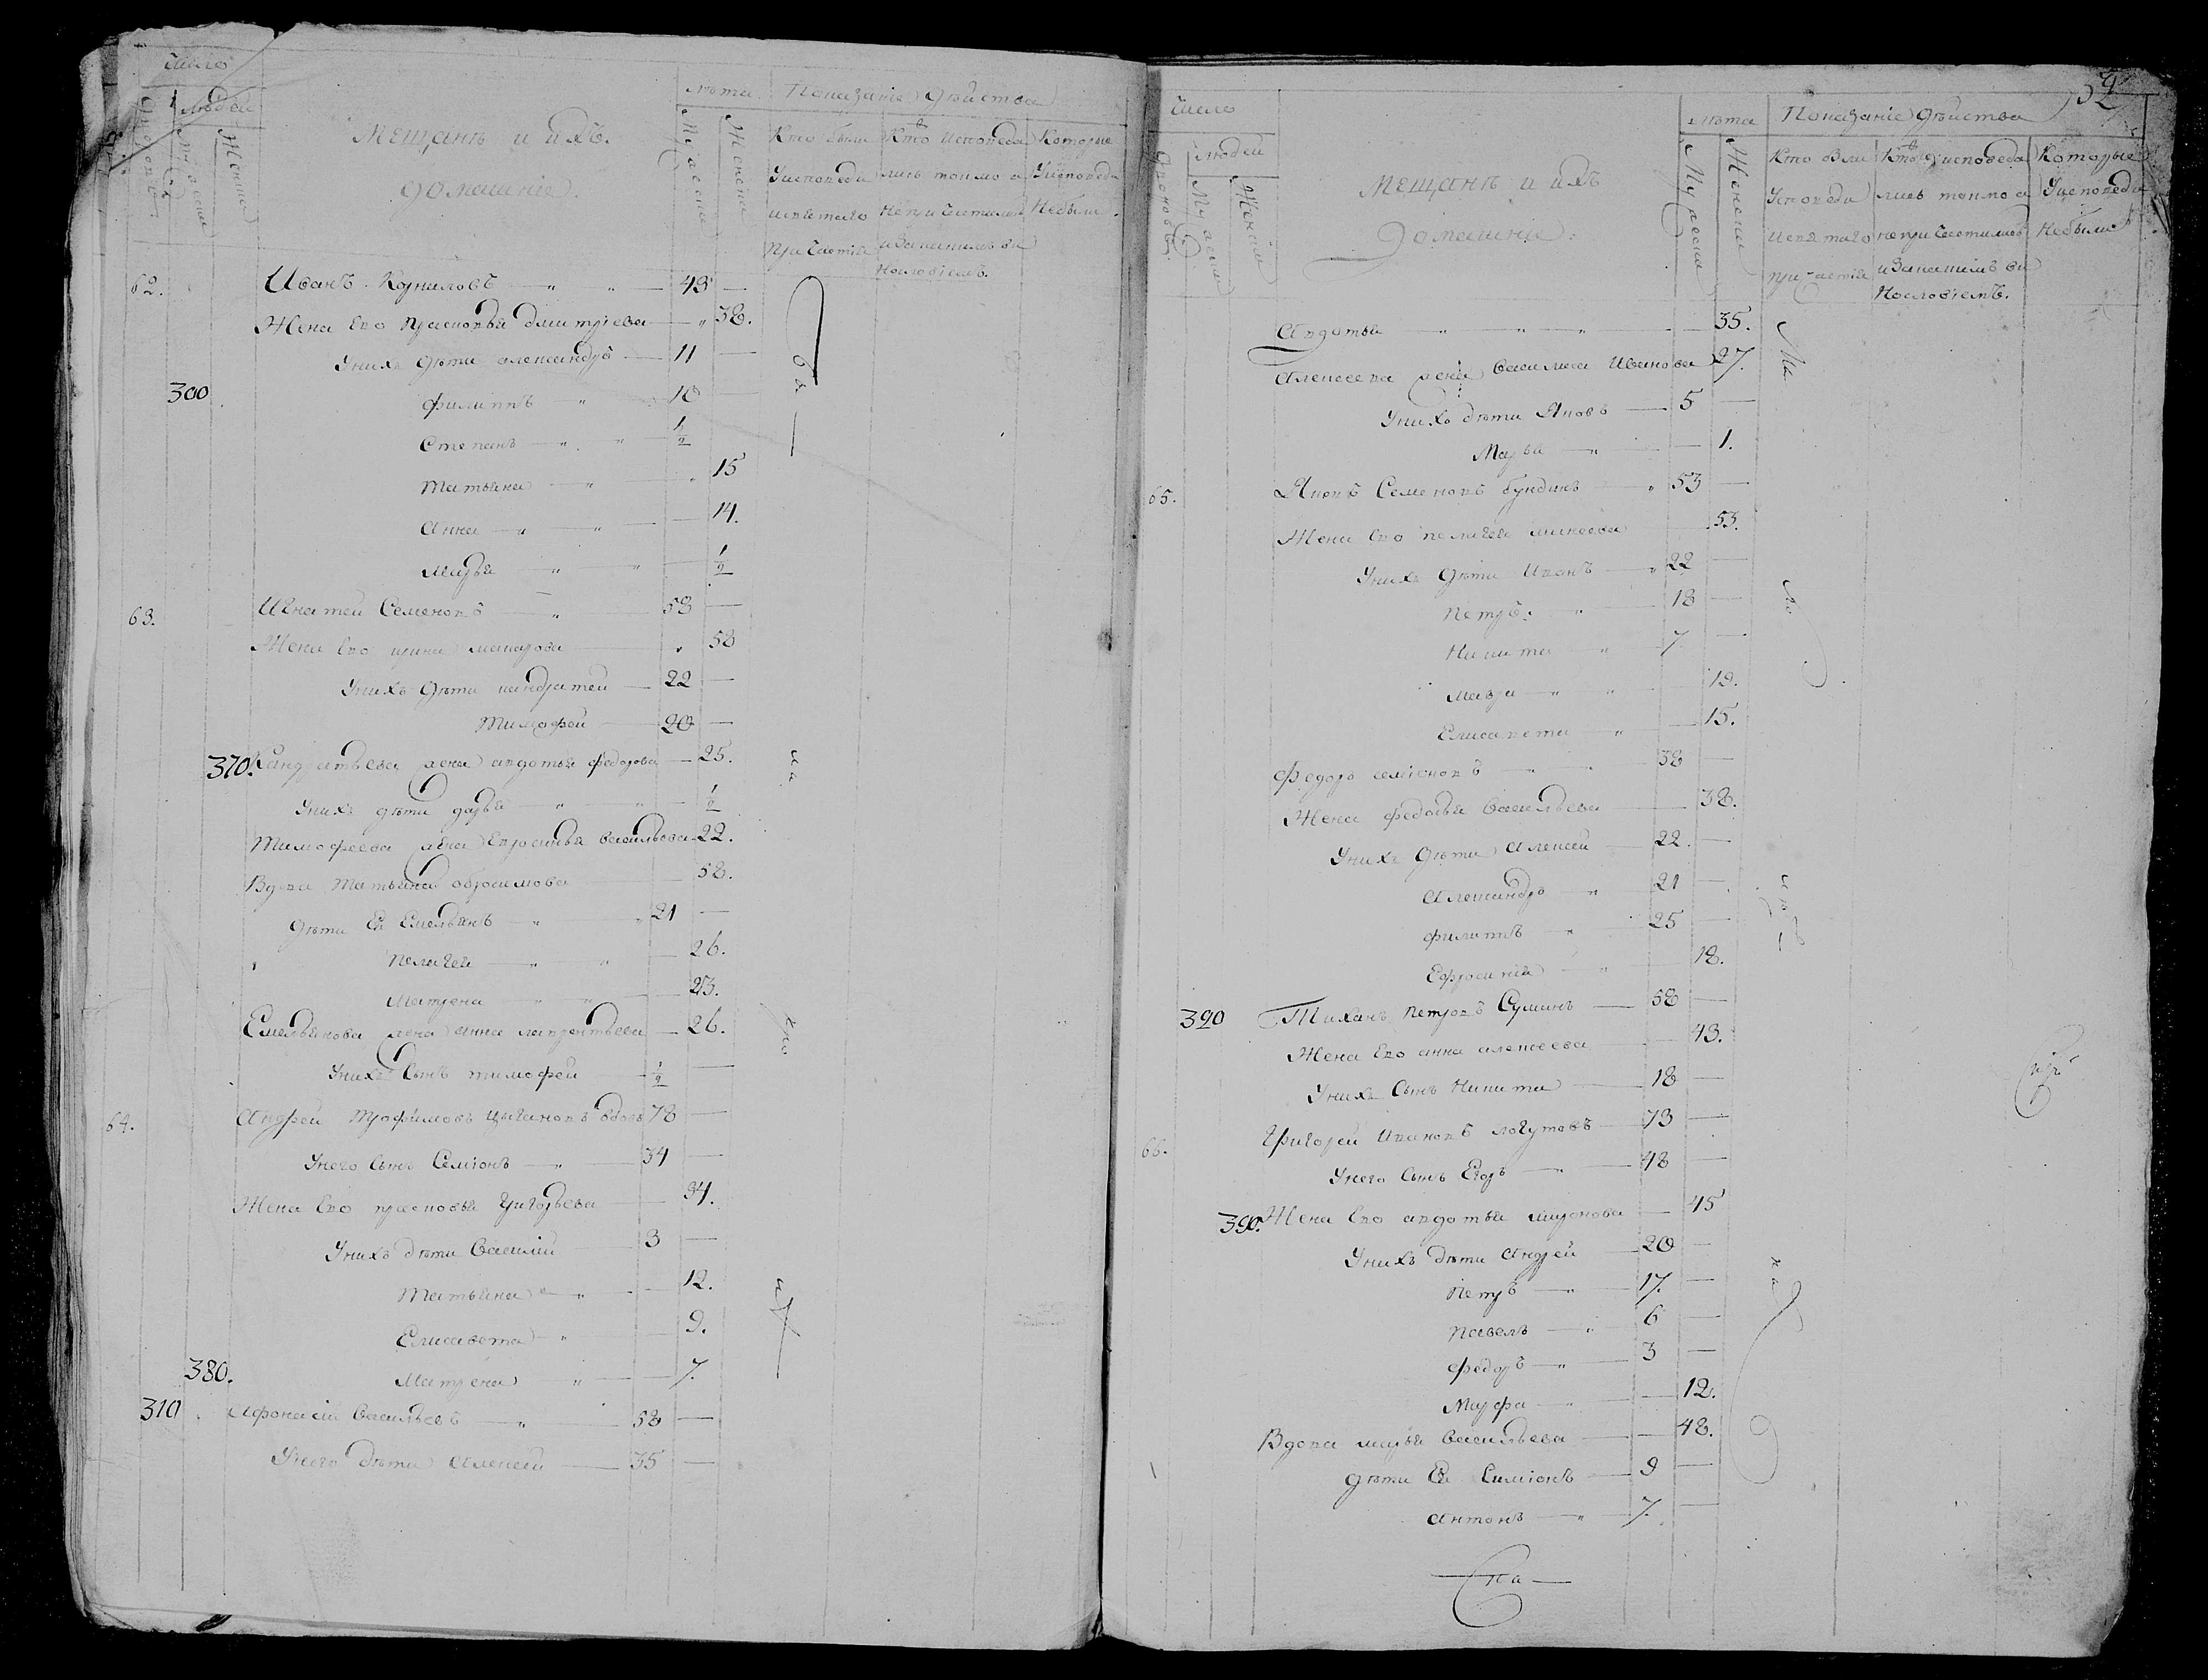 Число
Людей
Дворовъ.
Мужеска
Женска
Мещанъ и ихъ
домашніе.
Лѣта
Мужеска
Женска
Показаніе дѣйства
Кто были
Уисповеди
исвятаго
причастія
Кто исповеда
лись токмо а
непричастились
Которые
Уисповеди
Небыли.
62. Иванъ Корниловъ 43
Жена Ево прасковья дмитріева 38.
Унихъ дѣти александръ 11
300 филиппъ 10
Степанъ 1/2
татьяна 15
анна 14.
марья 1/2
63. Игнатей Семеновъ 58
Жена Ево ирина макарова 58
Унихъ дѣти кандратей 22
тимофей 20
370. Кандратьева жена авдотья федорова 25.
Унихъ дѣти дарья 1/2
тимофеева жена Евросинья васильева 22.
Вдова татьяна обросимова 58.
дѣти Ея Емельянъ 21
пелагея 26.
матрена 23.
Емельянова жена анна лаврентьева 26.
Унихъ Сынъ тимофей 1/2
64. андрей трофимовъ цыгановъ вдовъ 78
Унего Сынъ Семіонъ 34
Жена Ево прасковья григорьева 34.
Унихъ дѣти Василій 3
татьяна 12.
Елисавета 9.
380. Матрена 7.
310 афонасій Васильевъ 58
Унего дѣти алексей 35
52
Число
Людей
Дворовъ.
Мужеска
Женска
Мещанъ и ихъ
Домашніе:
Лѣта
Мужеска
Женска
Показаніе дѣйства
Кто были
Уисповеди
исвятаго
причастія
Кто исповеда
лись токмо а
непричастились
Которые
Уисповеди
Небыли
авдотья 35.
алексеева жена василиса Иванова 27.
Унихъ дѣти Яковъ 5
Марья 1.
65. Яковъ Семеновъ бундинъ 53
Жена Ево пелагея макеева 53.
Унихъ дѣти Иванъ 22
петръ 18
Никита 7
мавра 19.
Елисавета 15.
Федоръ семіоновъ 38
Жена федосья Васильева 38.
Унихъ дѣти алексей 22.
александръ 21
филиппъ 25
Ефросинія 18.
320 Тиханъ петровъ Суминъ 58
Жена Ево анна алексеева 43.
Унихъ Сынъ Никита 18
66. Григорей Ивановъ логутовъ 73
Унего Сынъ Егоръ 48
390. Жена Ево авдотья миронова 45
Унихъ дѣти андрей 20
петръ 17.
павелъ 6
федоръ 3
Марфа 12.
Вдова марья Васильева 48.
дѣти Ея Симіонъ 9
антонъ 7.